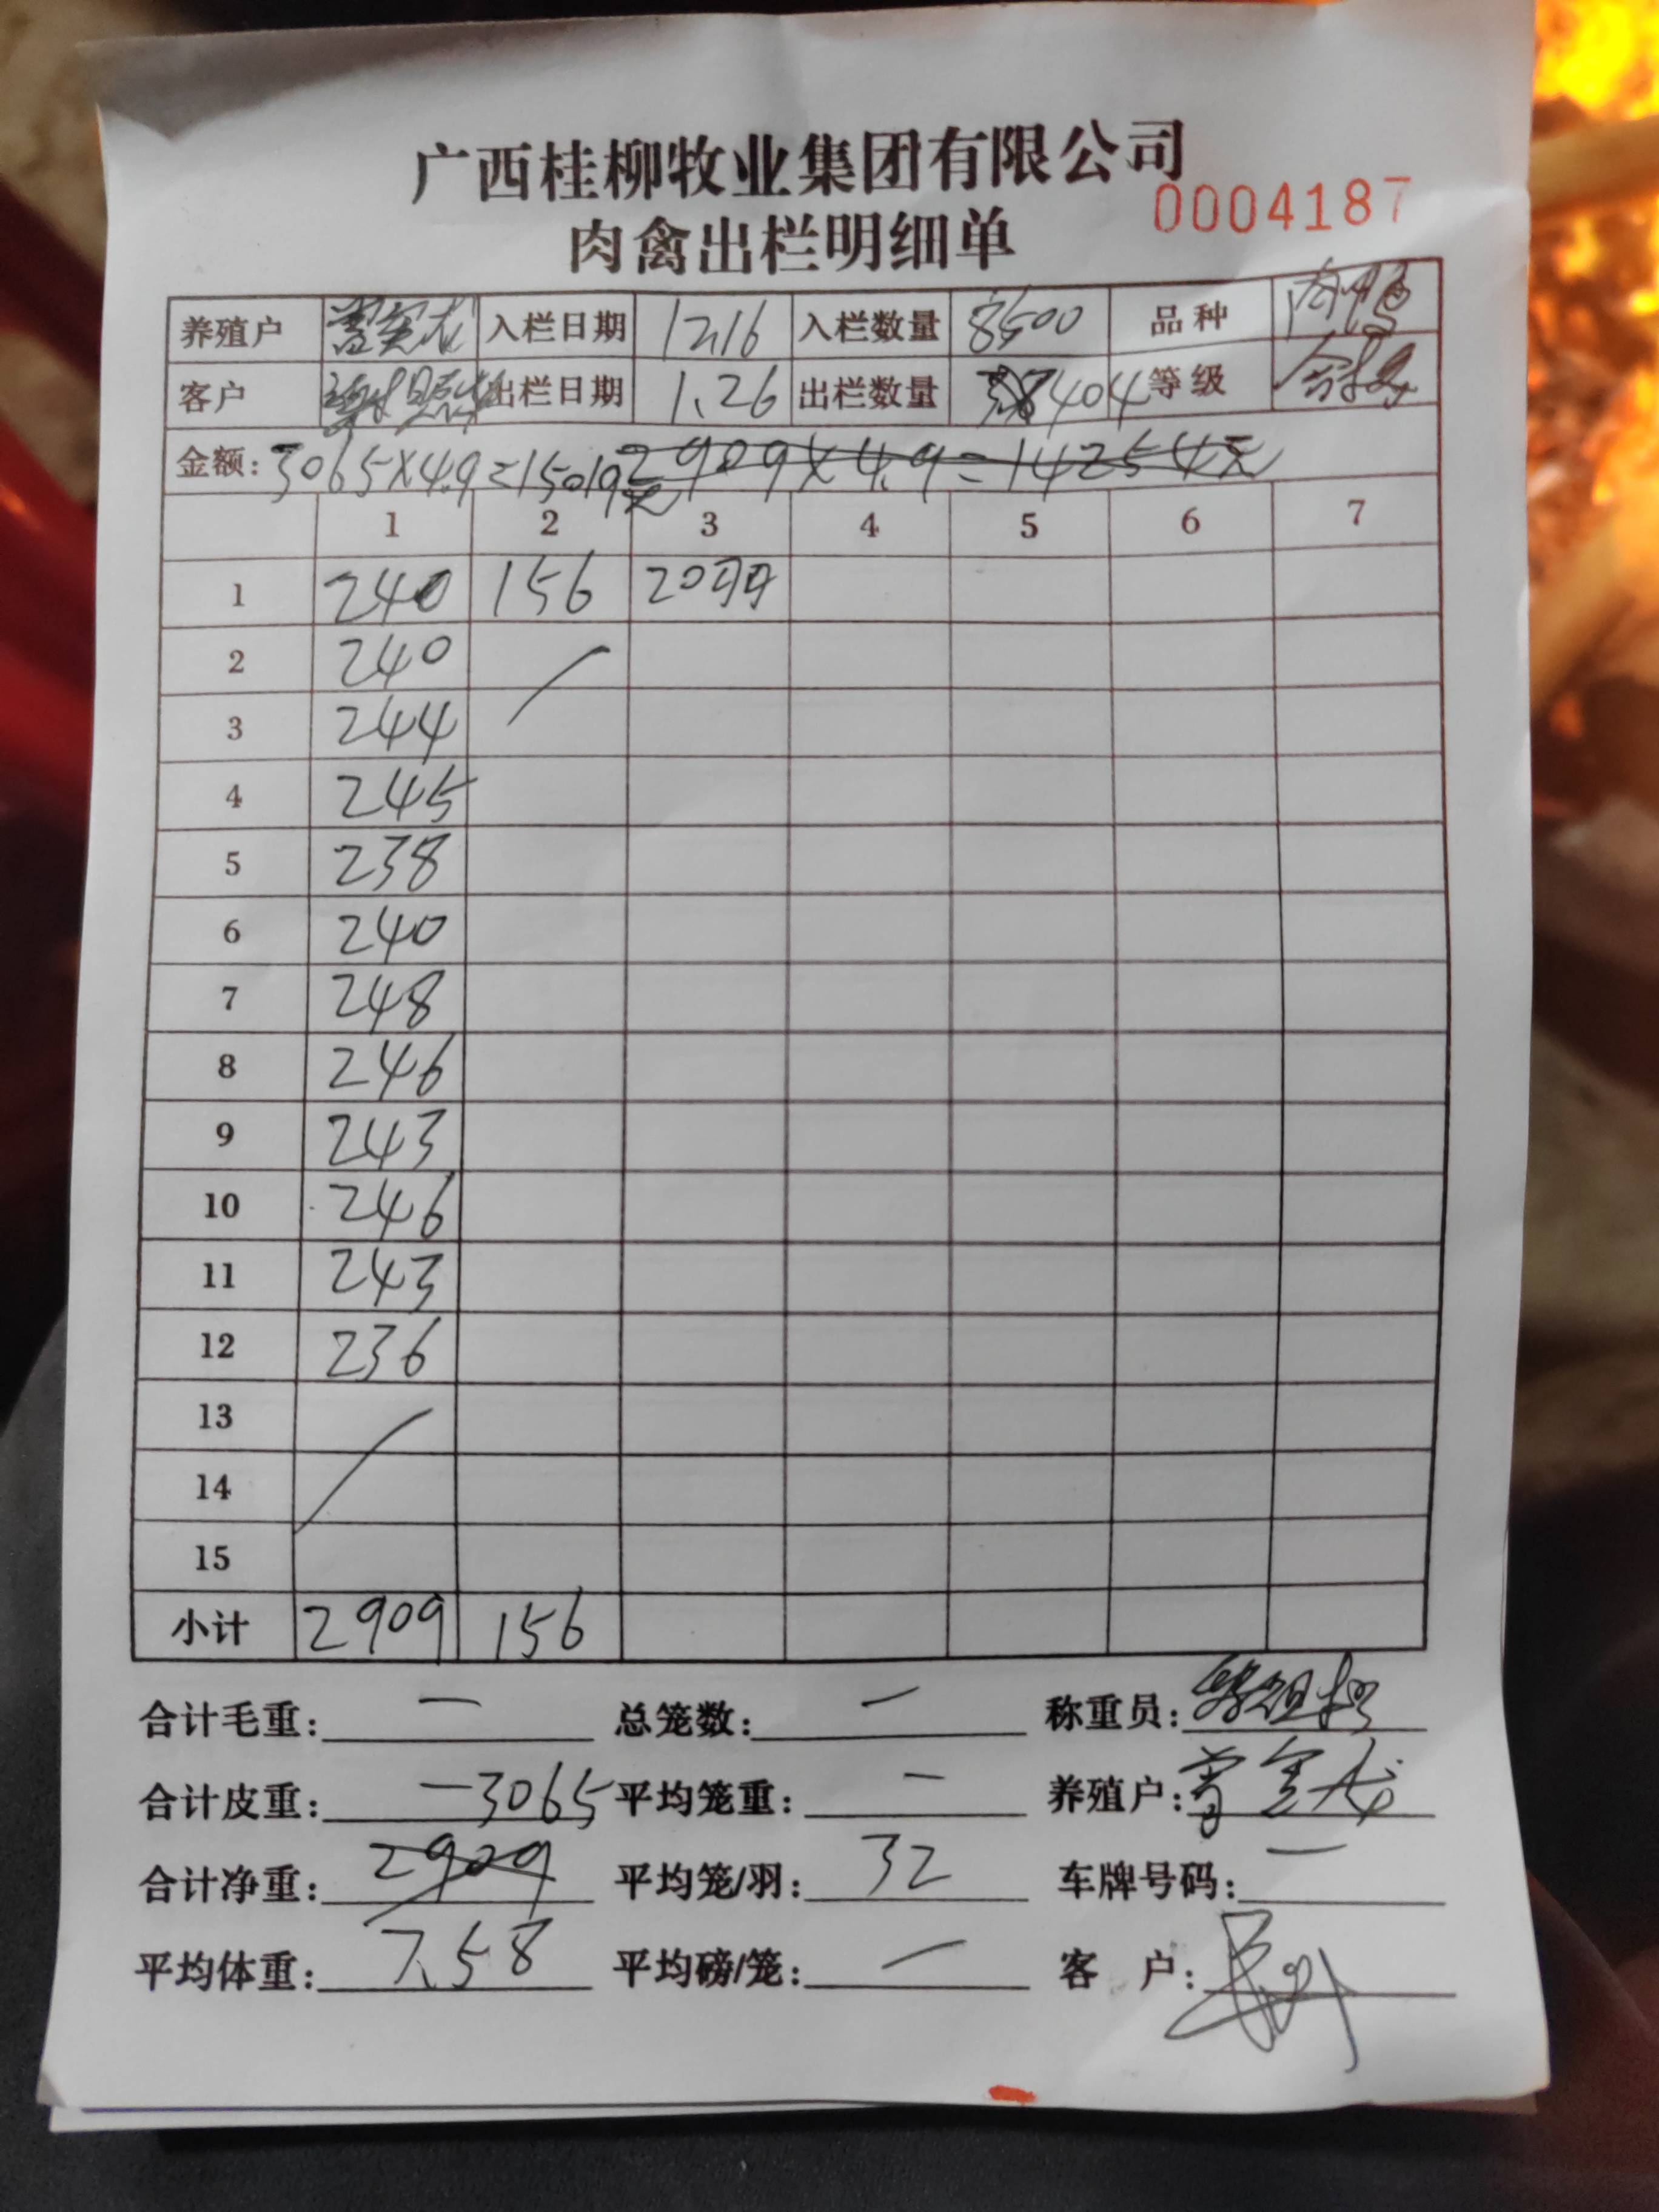 广西桂柳牧业集团有限公司
0004187
肉禽出栏明细单
养殖户 入栏日期 12.16 入栏数量 8500 品种 肉鸭
客户 出栏日期 1.26 出栏数量 404 等级 合格
金额: 3065×4.9=15019元 2909×4.9=14254元
1 2 3 4 5 6 7
1 240 156 20羽
2 240
3 244
4 245
5 238
6 240
7 248
8 246
9 243
10 246
11 243
12 236
13
14
15
小计 2909 156
合计毛重: — 总笼数: — 称重员:
合计皮重: — 3065 平均笼重: — 养殖户:
合计净重: 2909 平均笼/羽: 32 车牌号码: —
平均体重: 7.58 平均磅/笼: — 客 户: